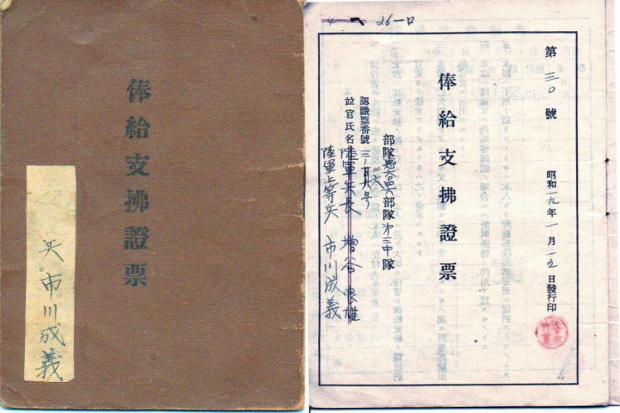 俸給支拂證票
兵 市川成義
26-口
第三〇號
昭和一九年一月一五日發行印
俸給支拂證票
部隊 部隊第三中隊
認識票番號 號
竝官氏名 陸軍兵長 增谷 雄
陸軍上等兵 市川成義